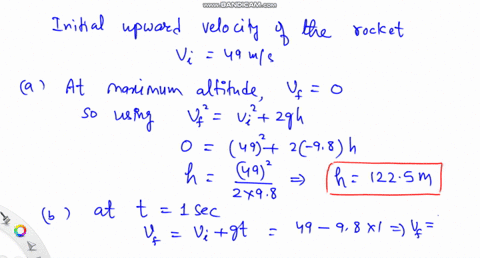 www.BANDICAM.com
Initial upward velocity of the rocket
Vi = 49 m/s
(a) At maximum altitude, Vf = 0
so using Vf² = Vi² + 2gh
0 = (49)² + 2(-9.8) h
h = (49)² / 2×9.8 ⇒ h = 122.5 m
(b) at t = 1 sec
Vf = Vi + gt = 49 - 9.8 × 1 ⇒ Vf =